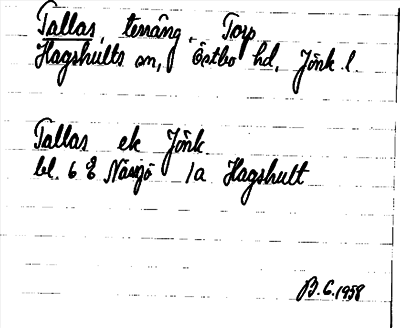 Tallas, terräng, Torp
Hagshults sn, Östbo hd, Jönk l.
Tallas ek Jönk
bl. 6 E Nässjö 1a Hagshult
B.G. 1958